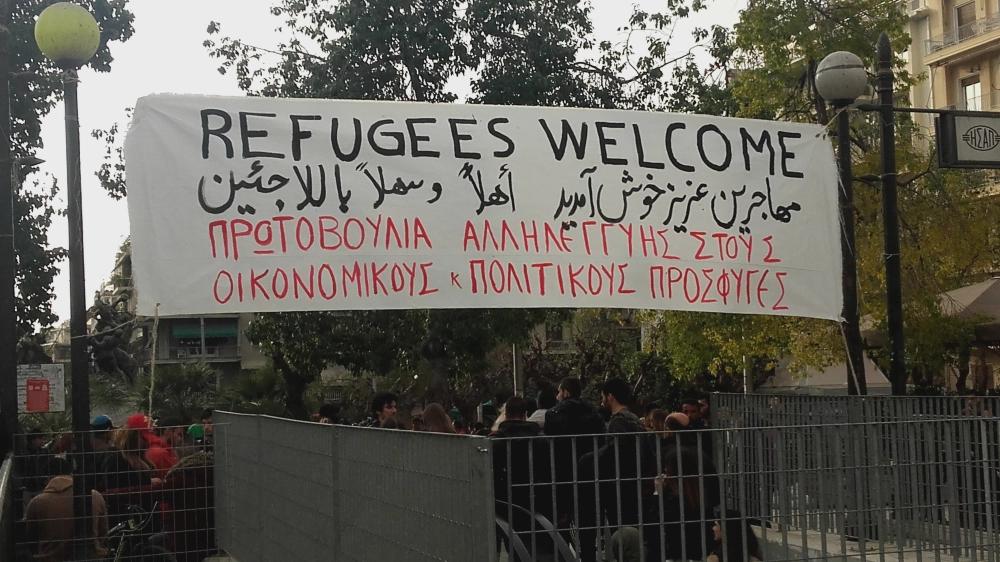 REFUGEES WELCOME
مهاجرین عزیز خوش آمدید أهلاً و سهلاً باللاجئين
ΠΡΩΤΟΒΟΥΛΙΑ ΑΛΛΗΛΕΓΓΥΗΣ ΣΤΟΥΣ
ΟΙΚΟΝΟΜΙΚΟΥΣ κ ΠΟΛΙΤΙΚΟΥΣ ΠΡΟΣΦΥΓΕΣ
ΗΣΑΠ